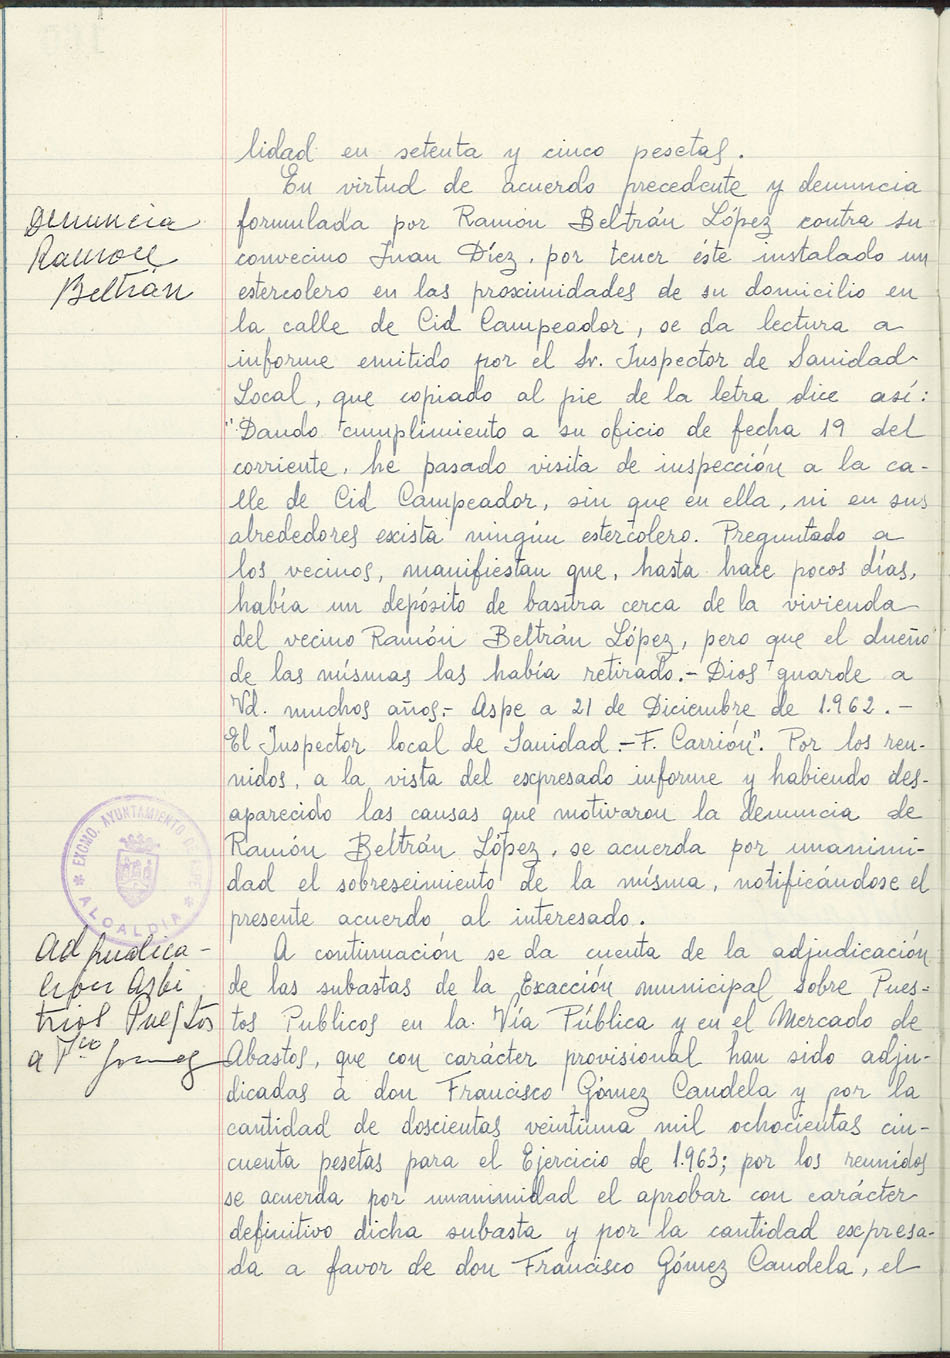 lidad en setenta y cinco pesetas.
En virtud de acuerdo precedente y denuncia
Denuncia
Ramón
Beltrán
formulada por Ramón Beltrán López contra su
convecino Juan Díez, por tener éste instalado un
estercolero en las proximidades de su domicilio en
la calle de Cid Campeador, se da lectura a
informe emitido por el Sr. Inspector de Sanidad
Local, que copiado al pie de la letra dice así:
"Dando cumplimiento a su oficio de fecha 19 del
corriente, he pasado visita de inspección a la ca-
lle de Cid Campeador, sin que en ella, ni en sus
alrededores exista ningún estercolero. Preguntado a
los vecinos, manifiestan que, hasta hace pocos días,
había un depósito de basura cerca de la vivienda
del vecino Ramón Beltrán López, pero que el dueño
de las mísmas las había retirado.- Dios guarde a
Vd. muchos años.- Aspe a 21 de Diciembre de 1.962.-
El Inspector local de Sanidad.- F. Carrión". Por los reu-
nidos, a la vista del expresado informe y habiendo des-
aparecido las causas que motivaron la denuncia de
Ramón Beltrán López, se acuerda por unanimi-
dad el sobreseimiento de la mísma, notificándose el
presente acuerdo al interesado.
EXCMO. AYUNTAMIENTO DE ASPE
* ALCALDIA *
Adjudica-
ción Arbi
trios Puestos
a Fco Gomez
A continuación se da cuenta de la adjudicación
de las subastas de la Exacción municipal sobre Pues-
tos Publicos en la Vía Pública y en el Mercado de
Abastos, que con carácter provisional han sido adju-
dicadas a don Francisco Gómez Candela y por la
cantidad de doscientas veintiuna mil ochocientas cin-
cuenta pesetas para el Ejercicio de 1.963; por los reunidos
se acuerda por unanimidad el aprobar con carácter
definitivo dicha subasta y por la cantidad expresa-
da a favor de don Francisco Gómez Candela, el